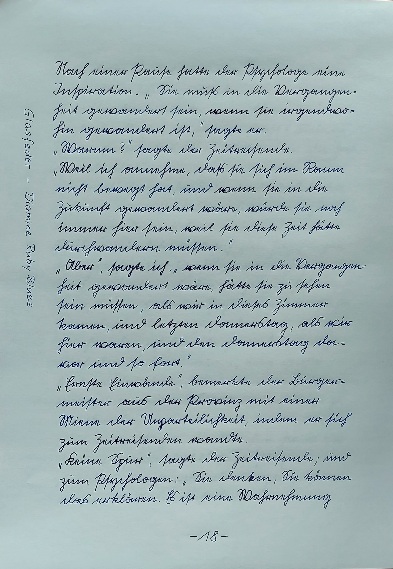 Nach einer Pause hatte der Psychologe eine
Inspiration. „Sie muß in die Vergangen-
heit gewandert sein, wenn sie irgendwo-
hin gewandert ist,“ sagte er.
„Warum?“ sagte der Zeitreisende.
„Weil ich annehme, daß sie sich im Raum
nicht bewegt hat, und wenn sie in die
Zukunft gewandert wäre, würde sie noch
immer hier sein, weil sie diese Zeit hätte
durchwandern müssen.“
„Aber“, sagte ich, „wenn sie in die Vergangen-
heit gewandert wäre, hätte sie zu sehen
sein müssen, als wir in dieses Zimmer
kamen, und letzten Donnerstag, als wir
hier waren, und den Donnerstag da-
vor und so fort.“
„Ernste Einwände“, bemerkte der Bürger-
meister aus der Provinz mit einer
Miene der Unparteilichkeit, indem er sich
zum Zeitreisenden wandte.
„Keine Spur“, sagte der Zeitreisende; und
zum Psychologen: „Sie denken, Sie können
das erklären. Es ist eine Wahrnehmung
-18-
Glasfeder -